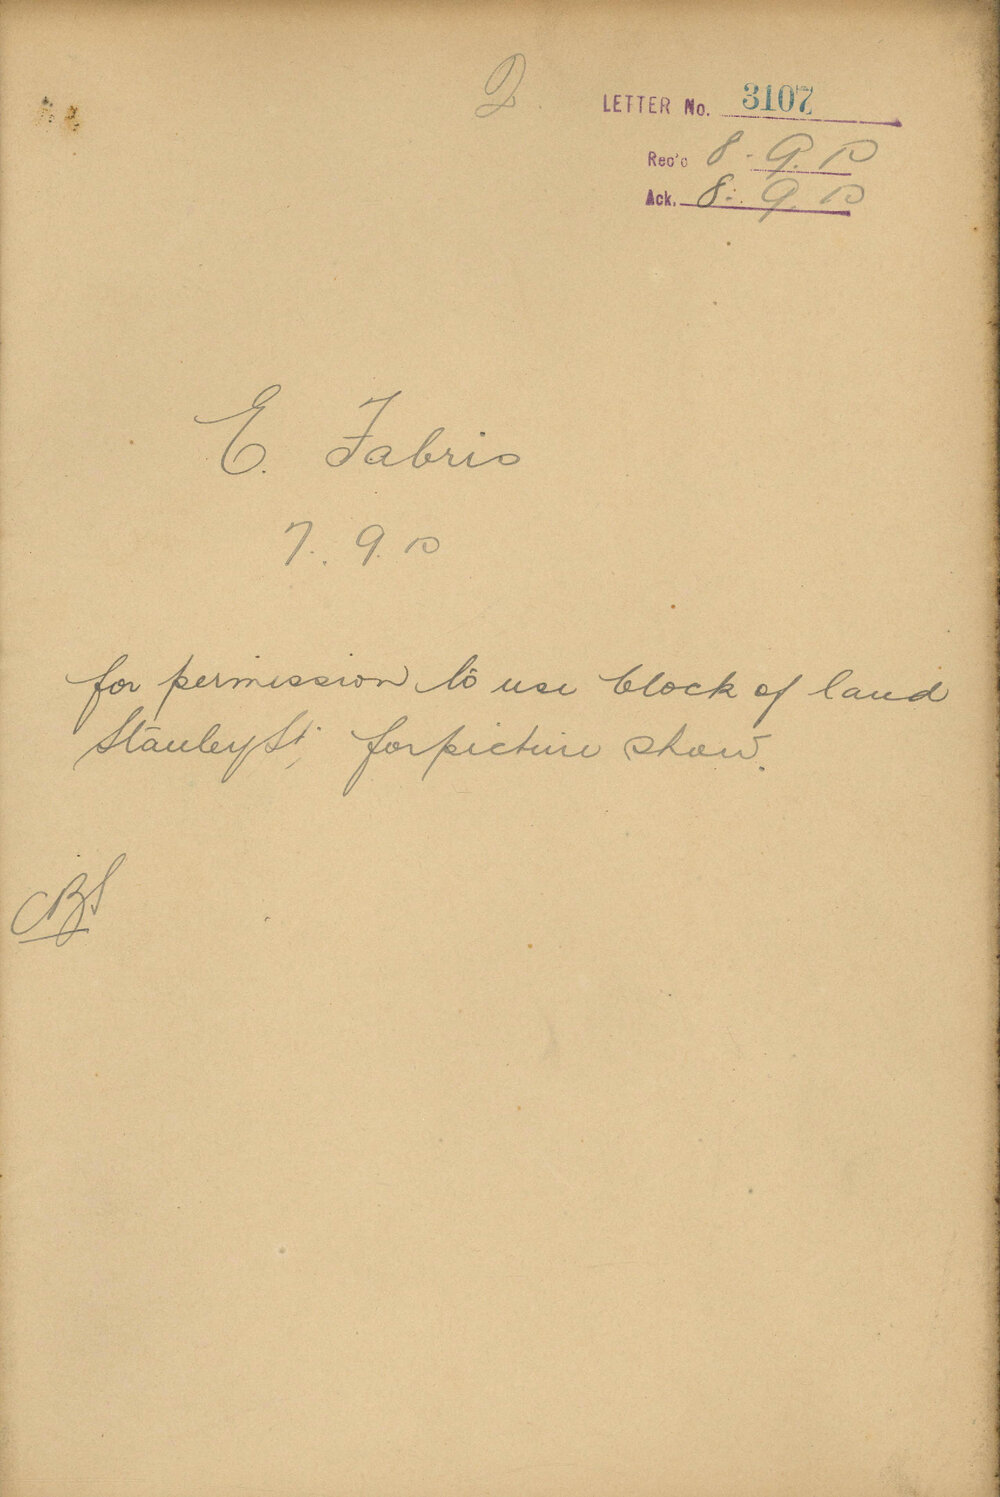 LETTER No. 3107
Rec'd 8. 9. 10
Ack. 8. 9. 10
E. Fabris
7. 9. 10
for permission to use block of land
Stanley St, for picture show.